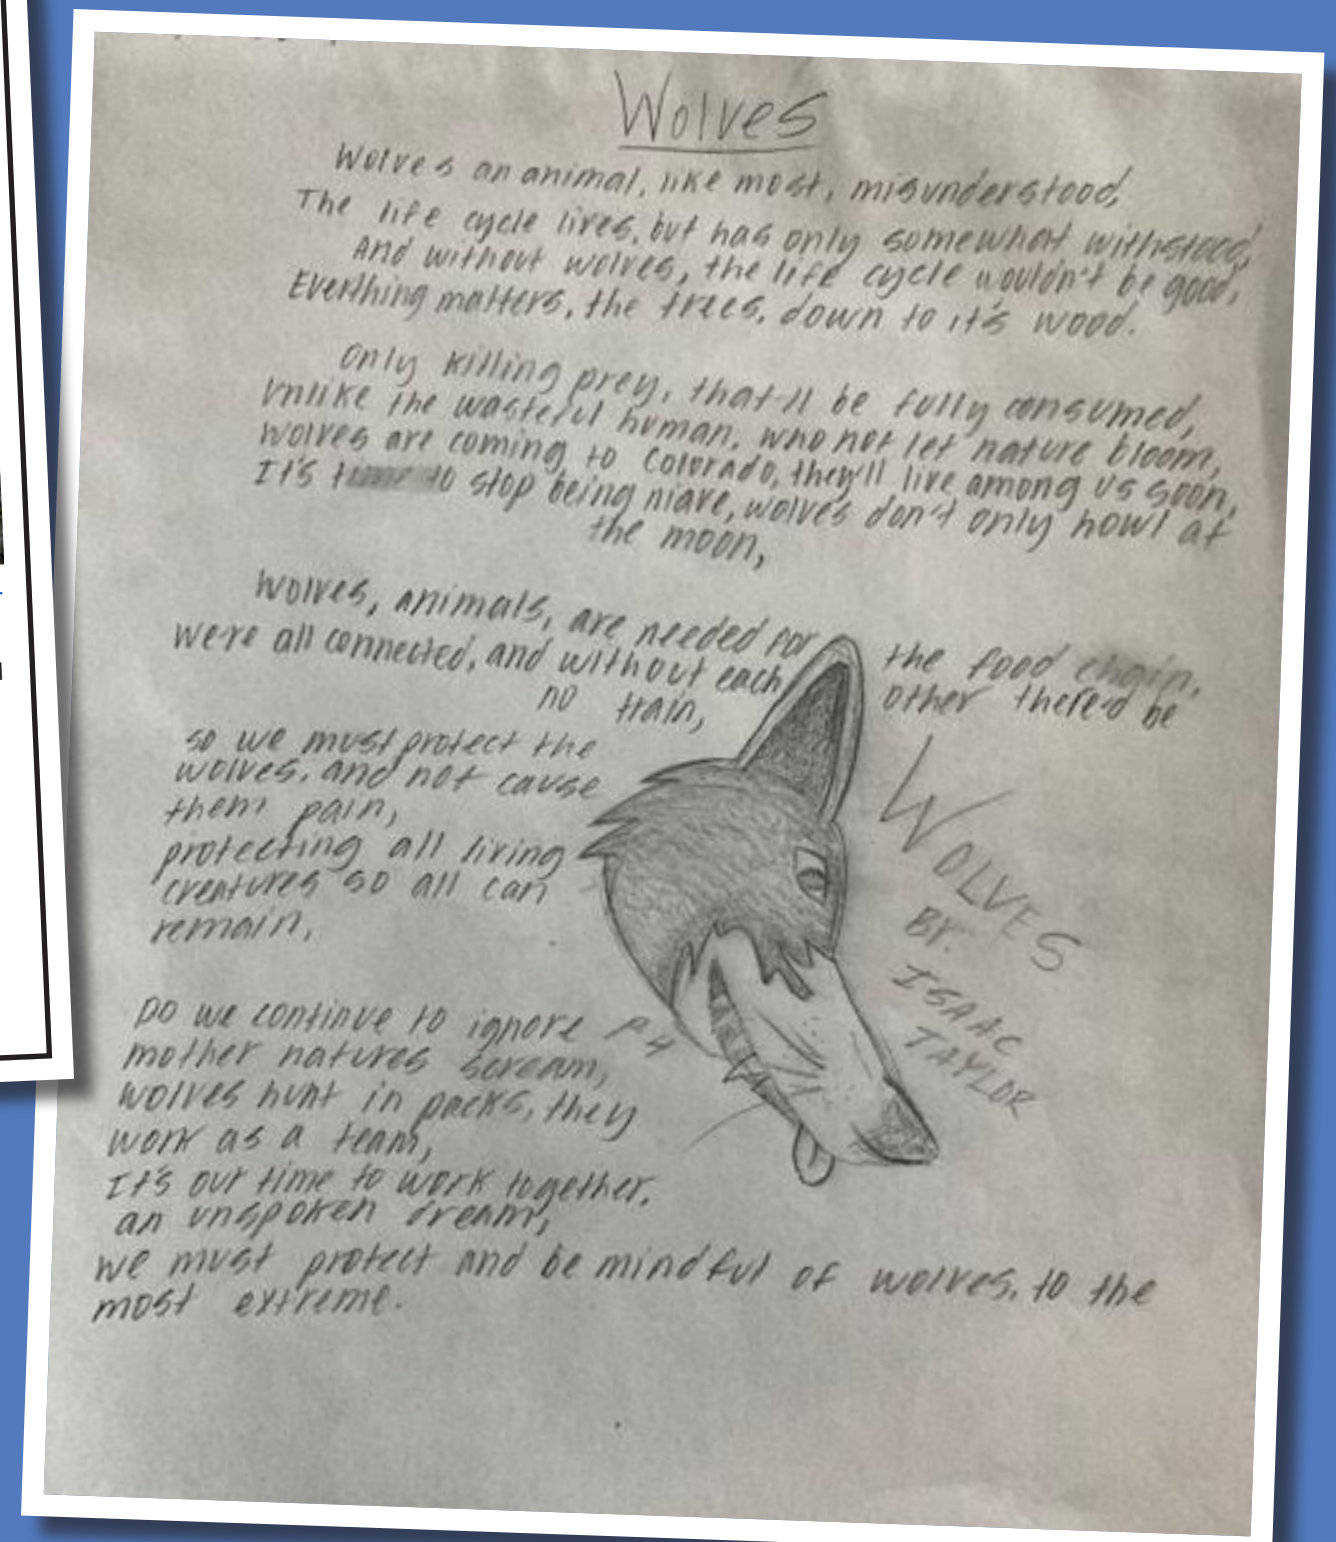 Wolves
Wolves an animal, like most, misunderstood,
The life cycle lives, but has only somewhat withstood,
And without wolves, the life cycle wouldn't be good,
Everthing matters, the trees, down to it's wood.
Only killing prey, that'll be fully consumed,
Unlike the wasteful human, who not let nature bloom,
Wolves are coming to Colorado, they'll live among us soon,
It's time to stop being niave, wolves don't only howl at
the moon,
Wolves, animals, are needed for the food chain,
We're all connected, and without each other there'd be
no train,
so we must protect the
wolves, and not cause
them pain,
protecting all living
creatures so all can
remain,
Do we continue to ignore
mother natures scream,
wolves hunt in packs, they
work as a team,
It's our time to work together,
an unspoken dream,
we must protect and be mindful of wolves, to the
most extreme.
WOLVES
BY:
ISAAC
TAYLOR
P.4